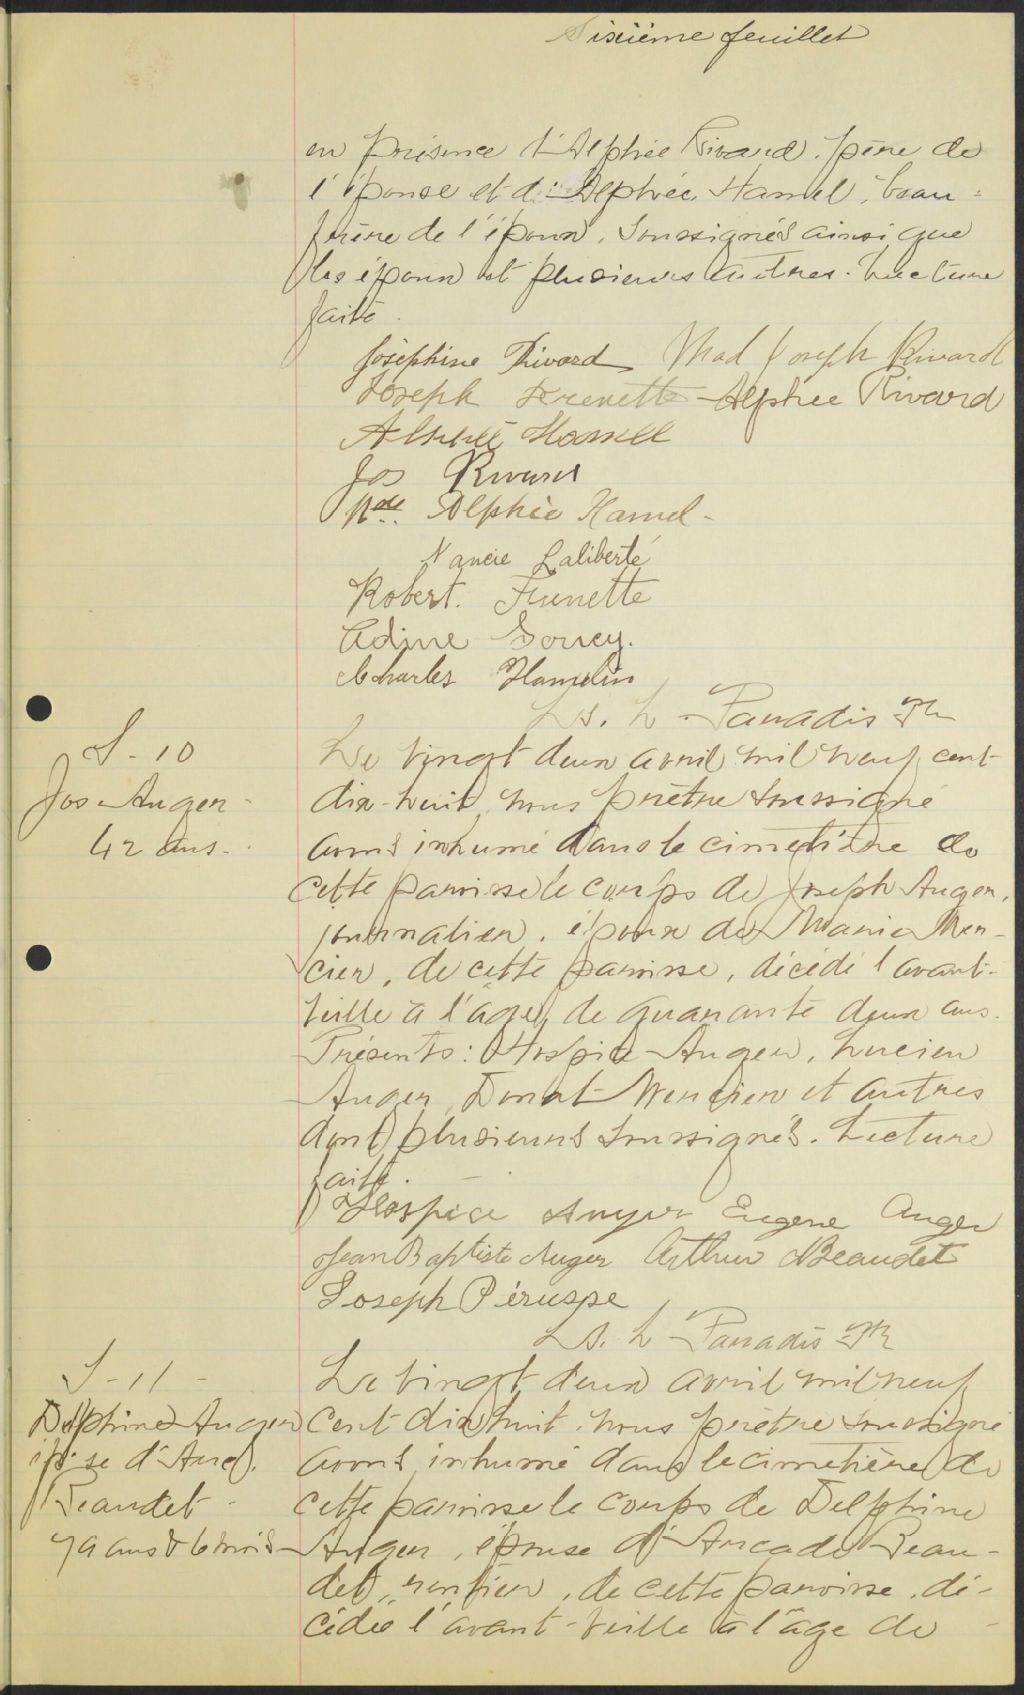 Sixième feuillet
en présence d'Alphée Rivard, père de
l'épouse et d'Alphée Hamel, beau-
frère de l'époux, soussignés ainsi que
les époux et plusieurs autres. Lecture
faite.
Joséphine Rivard Mad Joseph Rivard
Joseph Frenette Alphée Rivard
Hamell
Jos Rivard
Mde Alphée Hamel
Nancie Laliberté
Robert. Frenette
Adine Goucy.
Charles Hamelin
Ls. L. Paradis Ptr
S-10
Jos Auger
42 ans.
Le vingt deux avril mil neuf cent
dix-huit, nous prêtre soussigné
avons inhumé dans le cimetière de
cette paroisse le corps de Joseph Auger,
journalier, époux de Marie Mer-
cier, de cette paroisse, décédé l'avant-
veille à l'âge de quarante deux ans.
Présents: Hospice Auger, Lucien
Auger, Donat Mercier et autres
dont plusieurs soussignés. Lecture
faite.
Hospice Auger Eugene Auger
Jean Baptiste Auger Arthur Beaudet
Joseph Pérusse
Ls. L. Paradis Ptr
S-11-
Delphine Auger
épse d'Arc.
Beaudet
79 ans & 6 mois
Le vingt deux avril mil neuf
cent dix huit, nous prêtre soussigné
avons inhumé dans le cimetière de
cette paroisse le corps de Delphine
Auger, épouse d'Arcade Beau-
det, rentier, de cette paroisse, dé-
cédée l'avant-veille à l'âge de